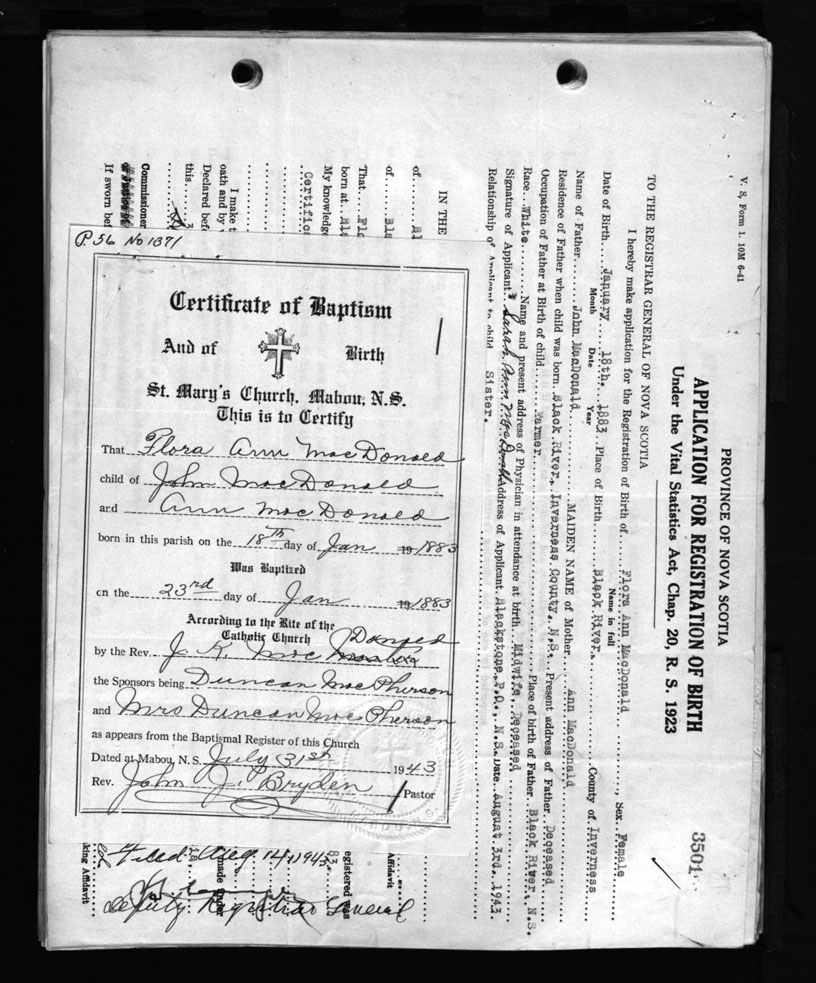 V. S, Form 1. 10M 6-41
PROVINCE OF NOVA SCOTIA
APPLICATION FOR REGISTRATION OF BIRTH
Under the Vital Statistics Act, Chap. 20, R. S. 1923
3501
TO THE REGISTRAR GENERAL OF NOVA SCOTIA
I hereby make application for the Registration of Birth of Flora Ann MacDonald, Sex Female
Name in full
Date of Birth January 18th. 1883 Place of Birth Black River, County of Inverness
Month Date Year
Name of Father John MacDonald MAIDEN NAME of Mother Ann MacDonald
Residence of Father when child was born Black River, Inverness County, N.S. Present address of Father Deceased
Occupation of Father at Birth of child Farmer Place of birth of Father Black River, N.S.
Race White Name and present address of Physician in attendance at birth Midwife, Deceased
Signature of Applicant Sarah Ann MacDonald Address of Applicant Blackstone, P.O., N.S. Date August 3rd. 1943
Relationship of Applicant to child Sister.
IN THE
of
of
That Flo
born at
My knowledge
Certific
I make t
oath and by
Declared bef
this 3
Commissioner
If sworn bef
P 56 No 1371
Certificate of Baptism
And of Birth
St. Mary's Church, Mabou, N.S.
This is to Certify
That Flora Ann MacDonald
child of John MacDonald
and Ann MacDonald
born in this parish on the 18th day of Jan 19 1883
Was Baptized
on the 23rd day of Jan 19 1883
According to the Rite of the
Catholic Church
by the Rev. J. K. MacDonald
the Sponsors being Duncan MacPherson
and Mrs Duncan MacPherson
as appears from the Baptismal Register of this Church
Dated at Mabou, N.S. July 31st 1943
Rev. John J. Bryden Pastor
Affidavit
egistered was
made under
king Affidavit
Filed Aug 14, 1943
Deputy Registrar General